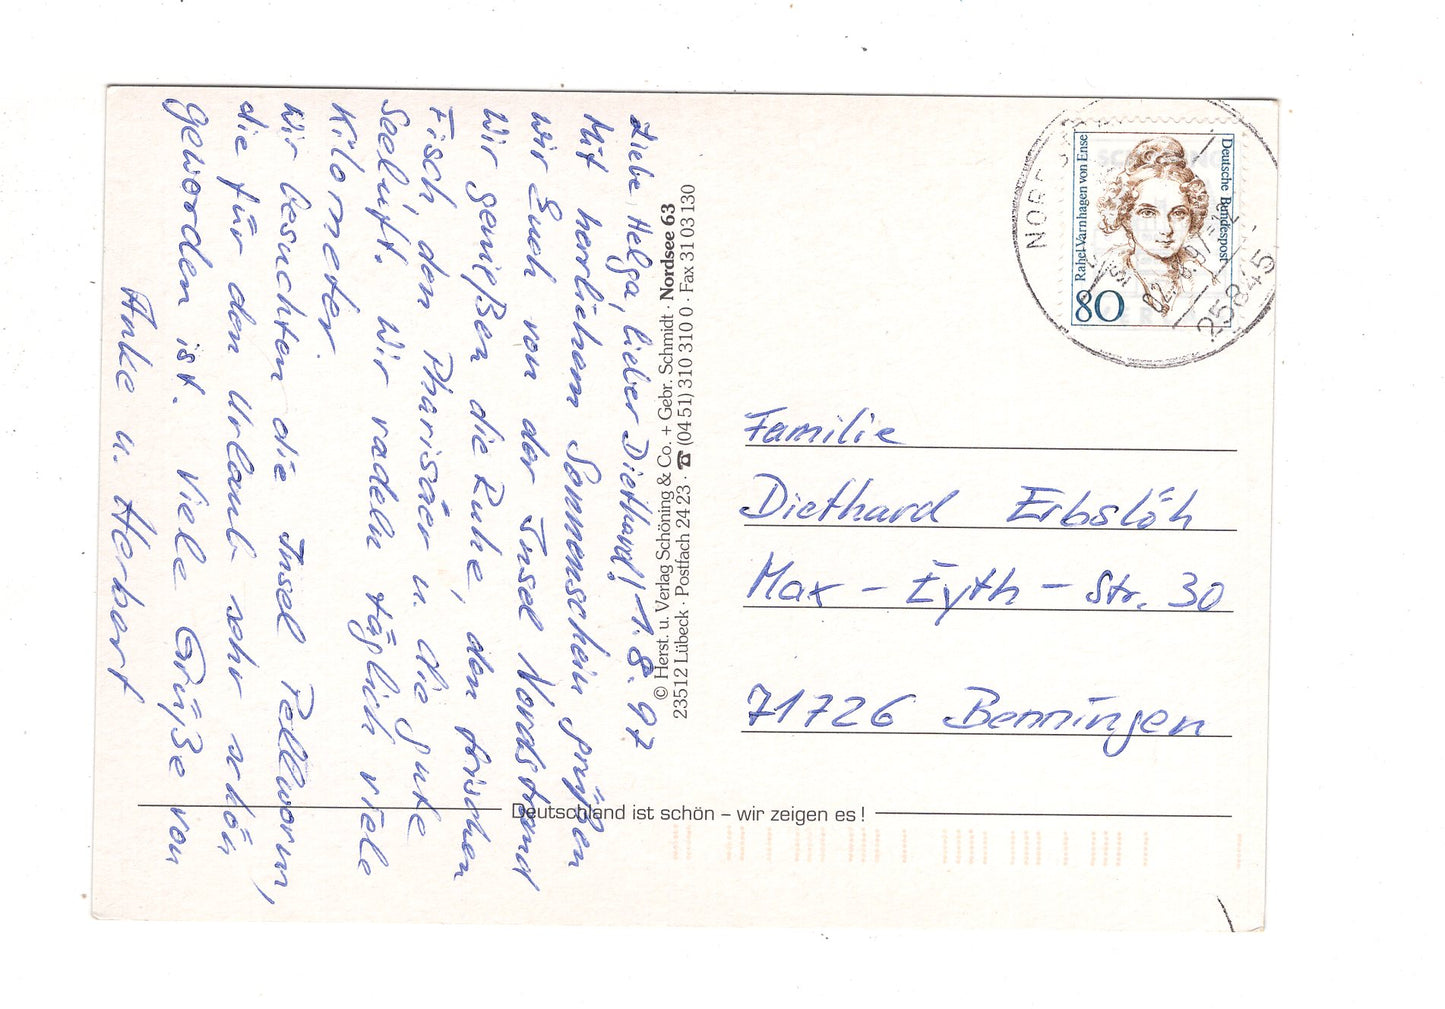 Liebe Helga, lieber Diethard! 1.8.97
Mit herrlichem Sonnenschein grüßen
wir Euch von der Insel Nordstrand
Wir genießen die Ruhe, den frischen
Fisch, den Pharisäer u. die gute
Seeluft. Wir radeln täglich viele
Kilometer.
Wir besuchten die Insel Pellworm,
die für den Urlaub sehr schön
geworden ist. Viele Grüße von
Anke u. Herbert
© Herst. u. Verlag Schöning & Co. + Gebr. Schmidt · Nordsee 63
23512 Lübeck · Postfach 24 23 · ☎ (04 51) 310 310 0 · Fax 31 03 130
Deutsche Bundespost
Rahel Varnhagen von Ense
80
25845
Familie
Diethard Erbslöh
Max - Eyth - Str. 30
71726 Benningen
Deutschland ist schön – wir zeigen es !